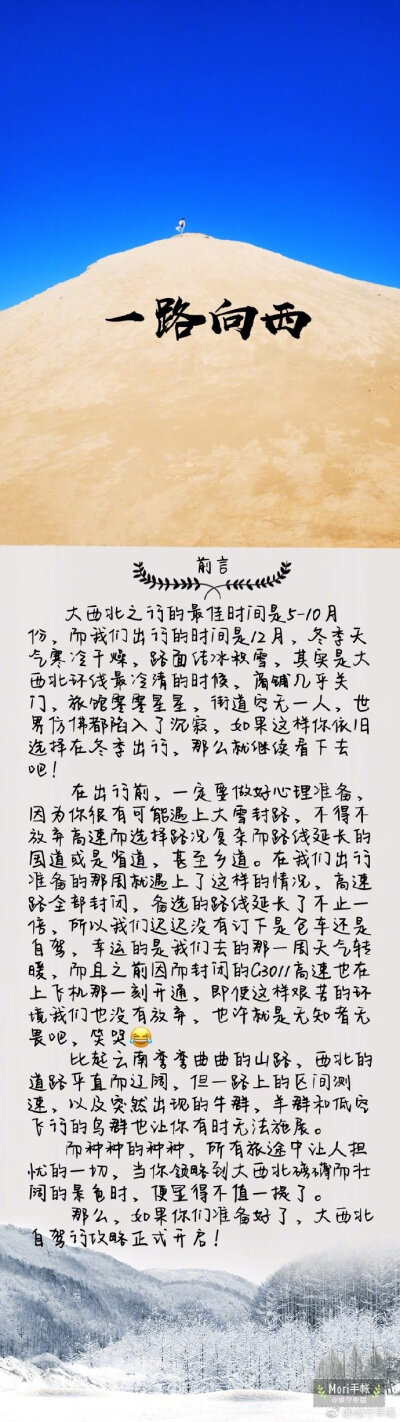 一路向西
前言
大西北之行的最佳时间是5-10月
份，而我们出行的时间是12月，冬季天
气寒冷干燥，路面结冰积雪，其实是大
西北环线最冷清的时候，商铺几乎关
门，旅馆零零星星，街道空无一人，世
界仿佛都陷入了沉寂，如果这样你依旧
选择在冬季出行，那么就继续看下去
吧！
在出行前，一定要做好心理准备，
因为你很有可能遇上大雪封路，不得不
放弃高速而选择路况复杂而路线延长的
国道或是省道，甚至乡道。在我们出行
准备的那周就遇上了这样的情况，高速
路全部封闭，备选的路线延长了不止一
倍，所以我们迟迟没有订下是包车还是
自驾，幸运的是我们去的那一周天气转
暖，而且之前因而封闭的G3011高速也在
上飞机那一刻开通，即使这样艰苦的环
境我们也没有放弃，也许就是无知者无
畏吧，笑哭😂
比起云南弯弯曲曲的山路，西北的
道路平直而辽阔，但一路上的区间测
速，以及突然出现的牛群，羊群和低空
飞行的鸟群也让你有时无法施展。
而种种的种种，所有旅途中让人担
忧的一切，当你领略到大西北磅礴而壮
阔的景色时，便显得不值一提了。
那么，如果你们准备好了，大西北
自驾行攻略正式开启！
Mori手帐